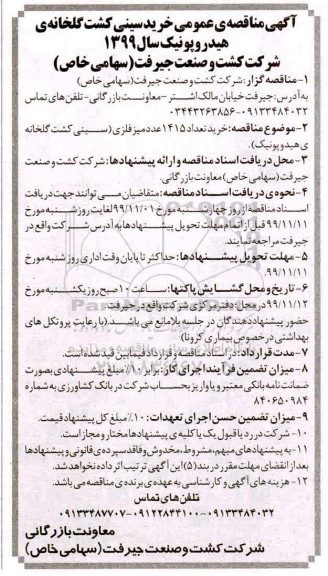 آگهی مناقصه‌ی عمومی خرید سینی کشت گلخانه‌ی
هیدروپونیک سال ۱۳۹۹
شرکت کشت و صنعت جیرفت (سهامی خاص)
۱- مناقصه گزار: شرکت کشت و صنعت جیرفت (سهامی خاص)
به آدرس: جیرفت خیابان مالک اشتر - معاونت بازرگانی - تلفن های تماس
۰۹۱۳۳۴۸۴۰۳۲-۰۳۴۴۳۲۶۳۸۵۶
۲- موضوع مناقصه: خرید تعداد ۱۴۱۵ عدد میز فلزی (سینی کشت گلخانه
ی هیدروپونیک).
۳- محل دریافت اسناد مناقصه و ارائه پیشنهادها: شرکت کشت و صنعت
جیرفت (سهامی خاص) معاونت بازرگانی.
۴- نحوه‌ی دریافت اسناد مناقصه: متقاضیان می توانند جهت دریافت
اسناد مناقصه از روز چهارشنبه مورخ ۹۹/۱۱/۰۱ لغایت روز شنبه مورخ
۹۹/۱۱/۱۱ قبل از اتمام مهلت تحویل پیشنهادها به آدرس شرکت واقع در
جیرفت مراجعه نمایند.
۵- مهلت تحویل پیشنهادها: حداکثر تا پایان وقت اداری روز شنبه مورخ
۹۹/۱۱/۱۱
۶- تاریخ و محل گشایش پاکتها: ساعت ۱۰ صبح روز یکشنبه مورخ
۹۹/۱۱/۱۲ در محل: دفتر مرکزی شرکت واقع در جیرفت
حضور پیشنهاد دهندگان در جلسه بلامانع می باشد. (با رعایت پروتکل های
بهداشتی در خصوص بیماری کرونا)
۷- مدت قرارداد: در اسناد مناقصه و قرارداد فیمابین قید شده است.
۸- میزان تضمین فرآیند اجرای کار: برابر ۱۰٪ مبلغ پیشنهادی بصورت
ضمانت نامه بانکی معتبر و یا واریز بحساب شرکت در بانک کشاورزی به شماره
۸۴۰۶۵۰۹۸۴
۹- میزان تضمین حسن اجرای تعهدات: ۱۰٪ مبلغ کل پیشنهاد قیمت.
۱۰- شرکت در رد یا قبول یک یا کلیه ی پیشنهادها مختار و مجاز است.
۱۱- به پیشنهادهای مبهم، مشروط، مخدوش و فاقد سپرده ی قانونی و پیشنهادها
بعد از انقضای مهلت مقرر در بند (۵) این آگهی ترتیب اثر داده نخواهد شد.
۱۲- هزینه های آگهی و کارشناسی به عهده ی برنده ی مناقصه می باشد.
تلفن های تماس
۰۹۱۳۳۴۸۷۷۰۷-۰۹۱۲۲۸۴۴۱۰۰-۰۹۱۳۳۴۸۴۰۳۲
معاونت بازرگانی
شرکت کشت و صنعت جیرفت (سهامی خاص)